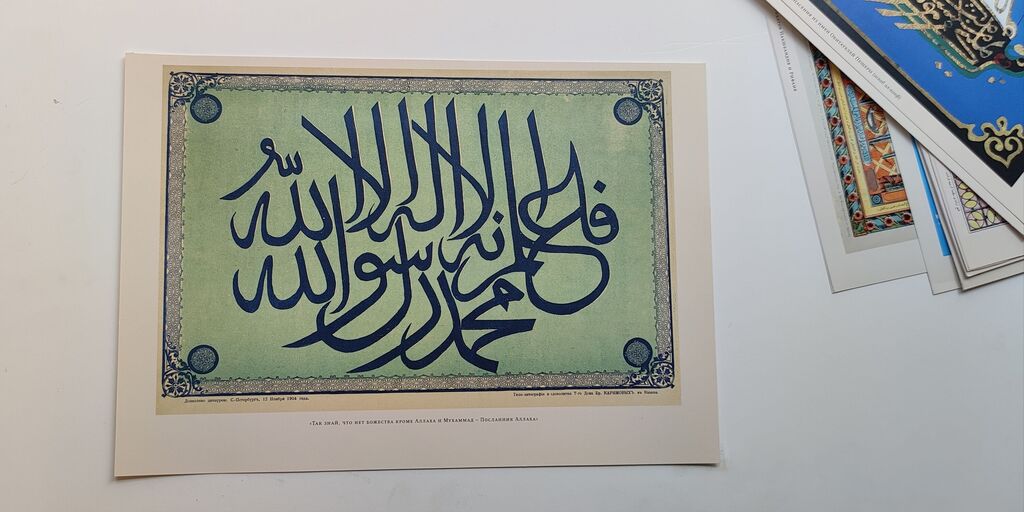 فاعلم انه لا اله الا الله
محمد رسول الله
Дозволено цензурою. С.-Петербургъ, 12 Ноября 1904 года.
Типо-литографія и словолитня Т-го Дома Бр. КАРИМОВЫХЪ, въ Казани.
«Так знай, что нет божества кроме Аллаха и Мухаммад – Посланник Аллаха»